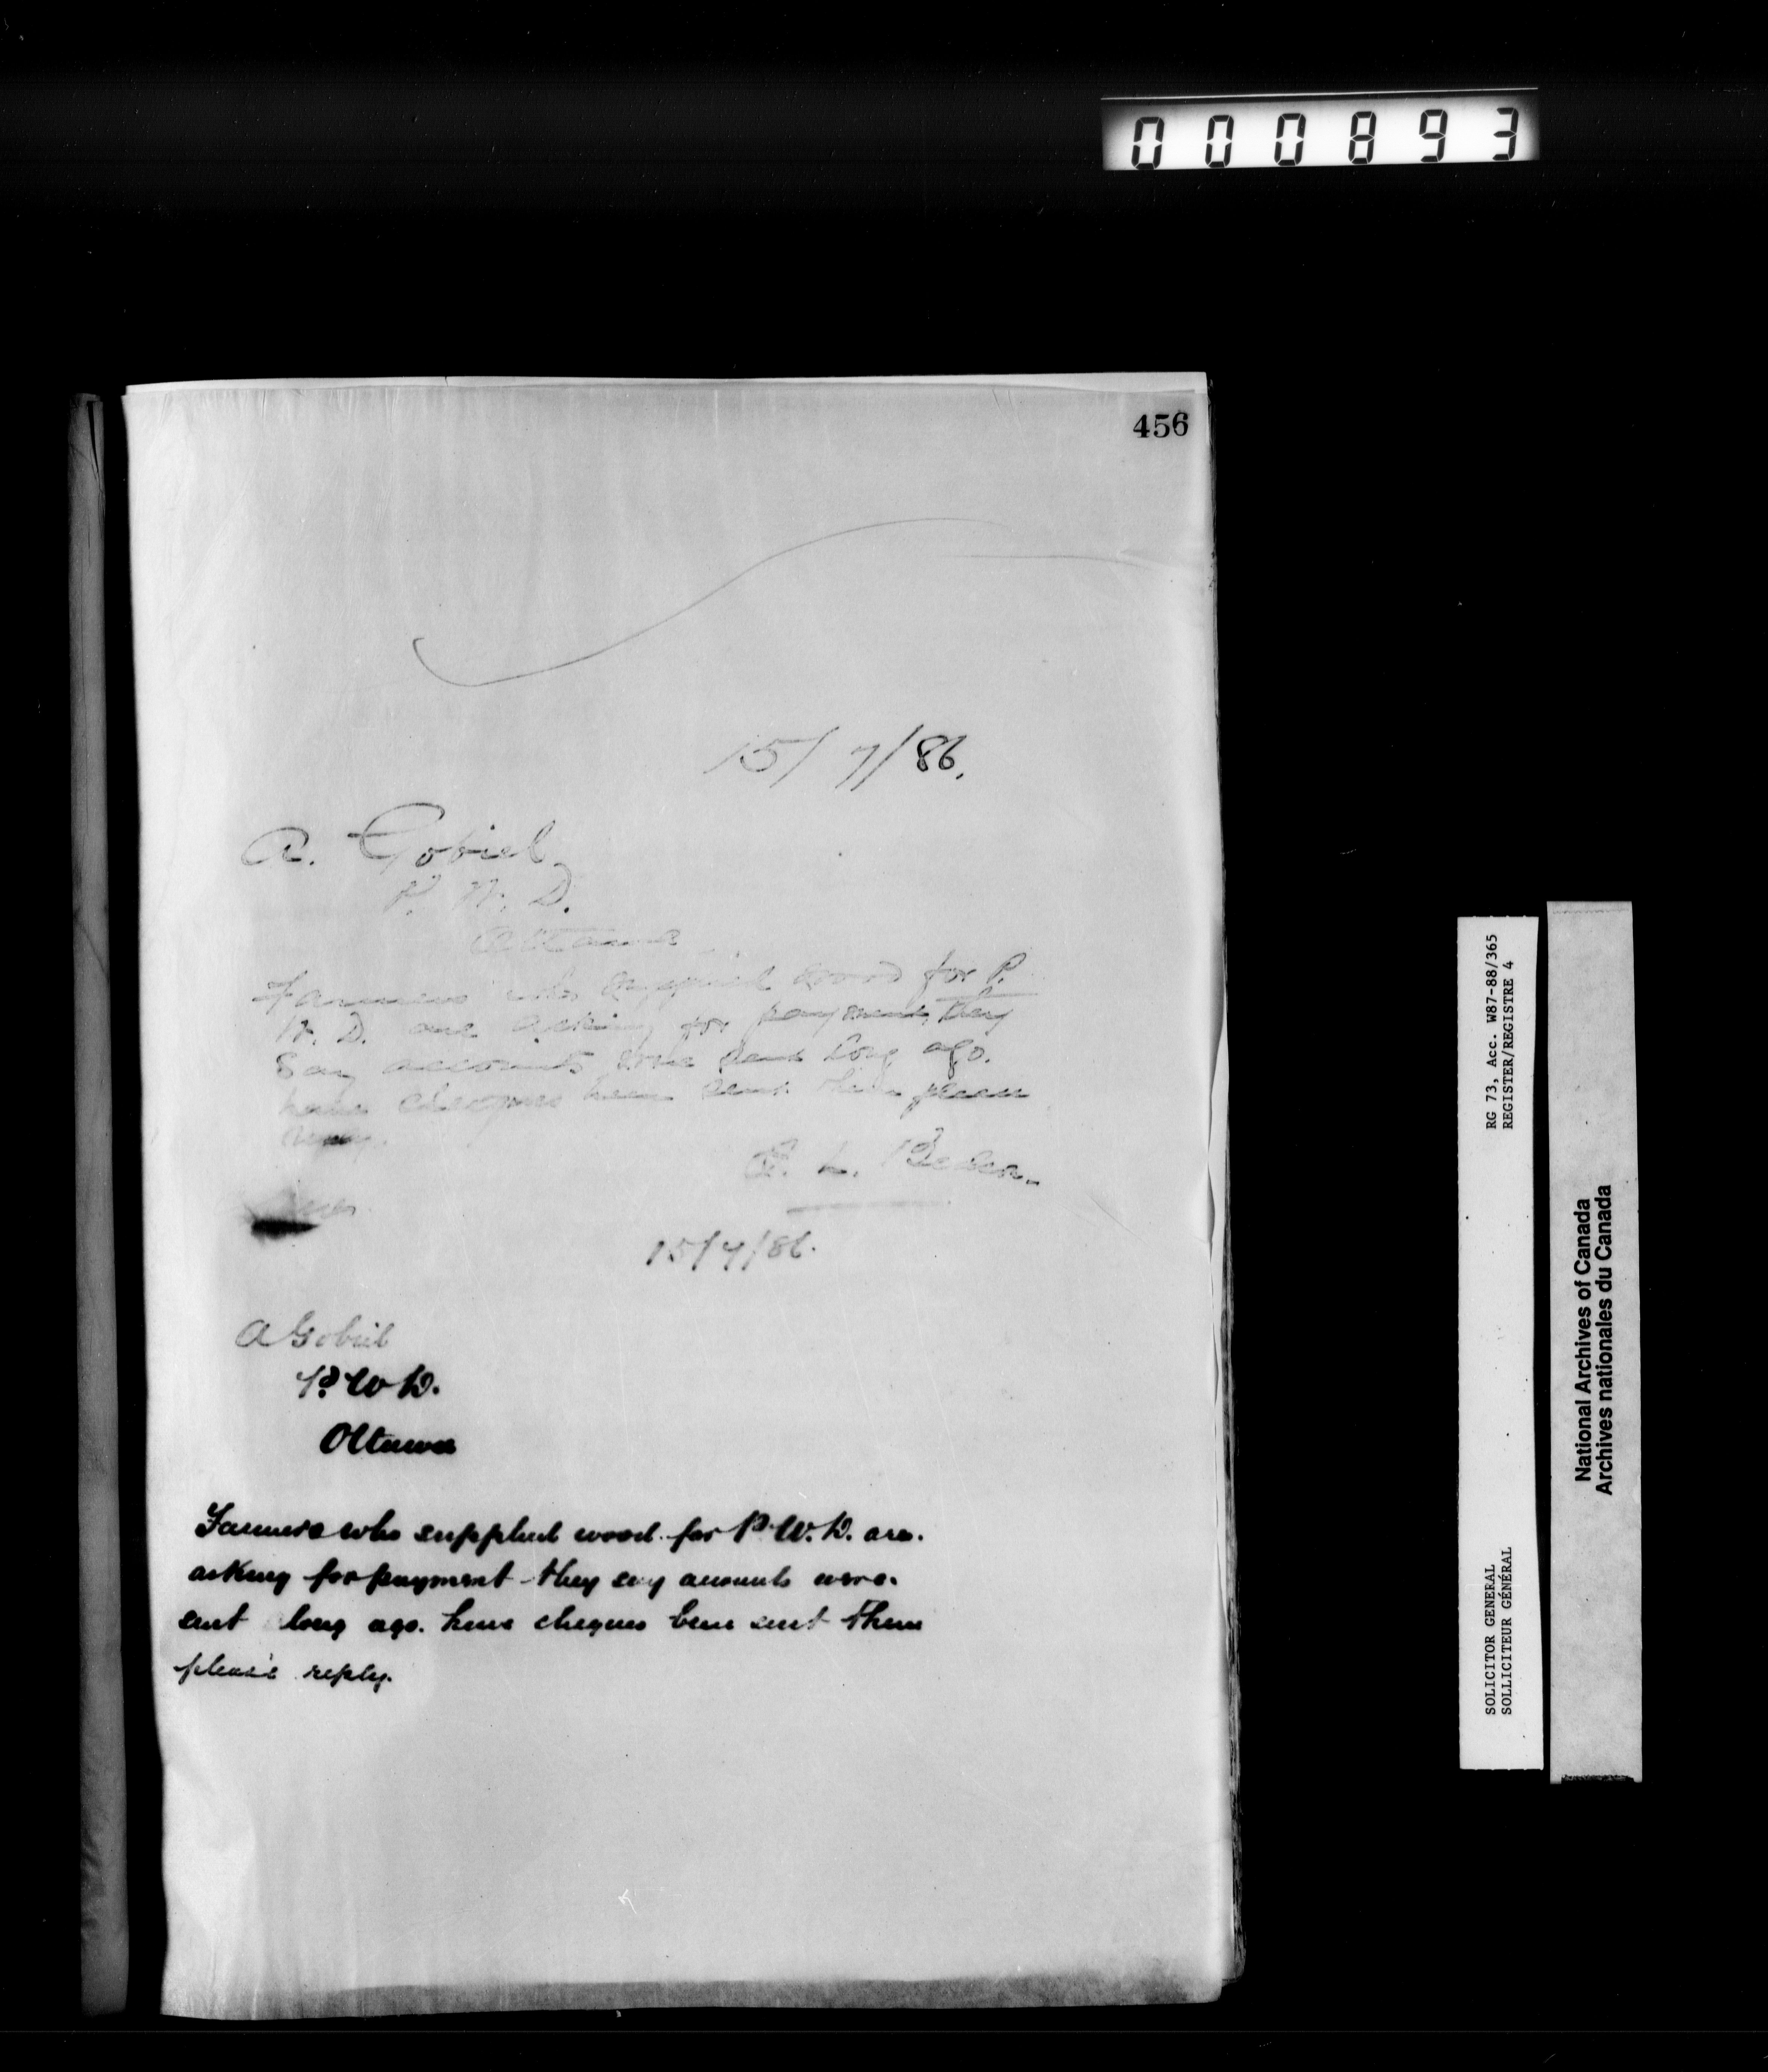 000893
456
15/7/86.
A. Gobiel.
P. W. D.
Ottawa
Farmers who supplied wood for P.
W. D. are asking for payment, they
Say accounts were sent long ago.
have cheques been sent them please
reply.
15/7/86.
A Gobiel
P. W D.
Ottawa
Farmers who supplied wood for P. W. D. are.
asking for payment they say accounts were.
sent long ago. have cheques been sent them
please reply.
RG 73, Acc. W87-88/365
REGISTER/REGISTRE 4
SOLICITOR GENERAL
SOLLICITEUR GÉNÉRAL
National Archives of Canada
Archives nationales du Canada